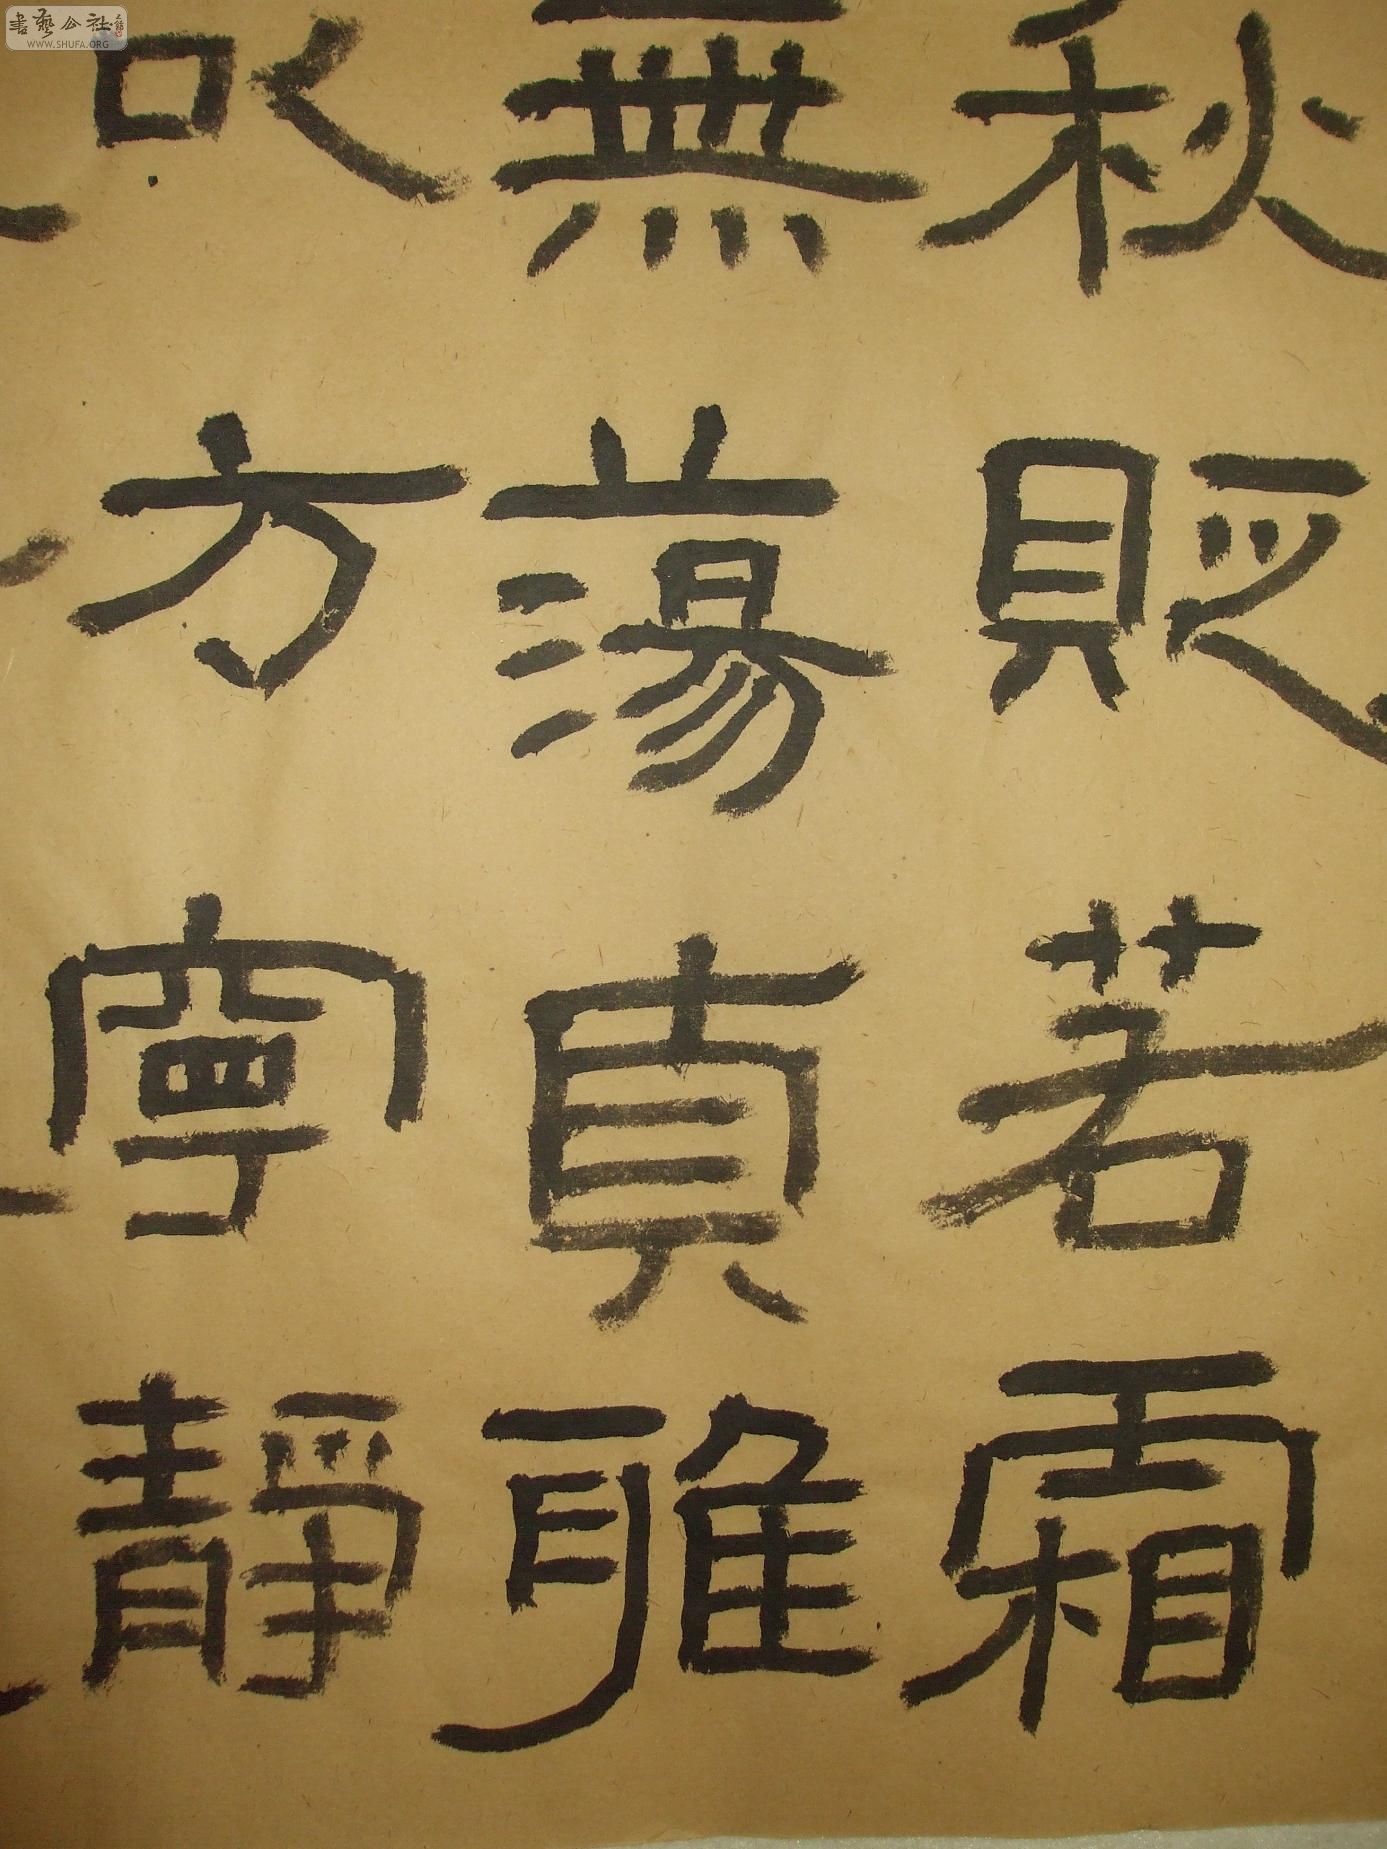 秋貶若霜
無蕩貞雅
以方寧靜
書藝公社
WWW.SHUFA.ORG